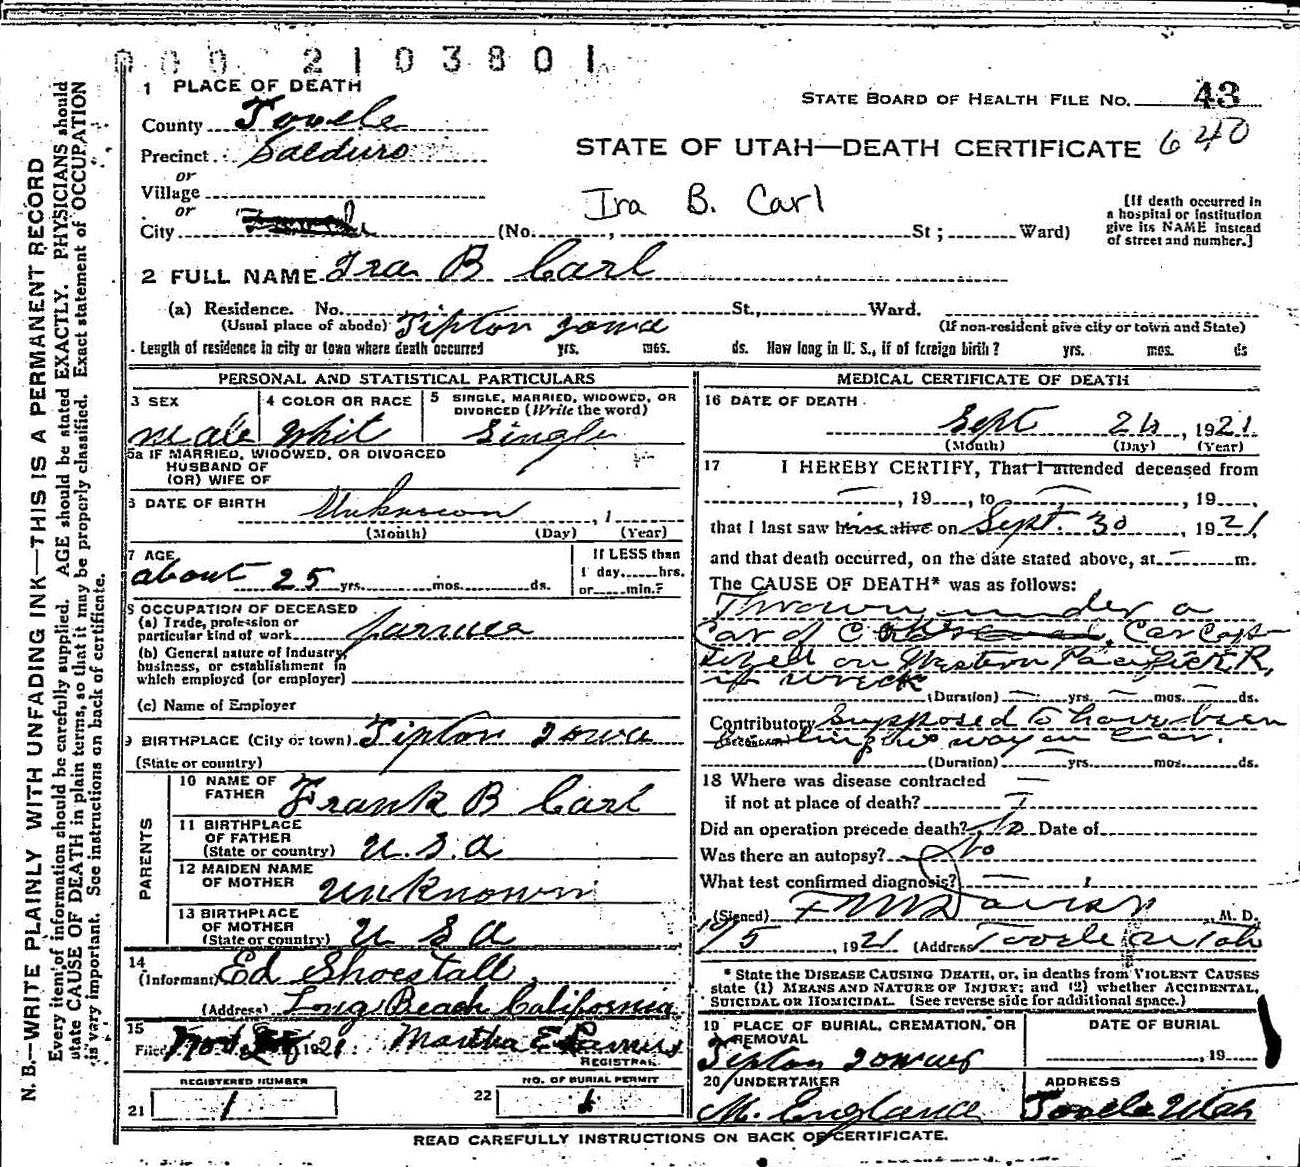 000 2103801
1 PLACE OF DEATH
STATE BOARD OF HEALTH FILE NO. 43
County Tooele
640
Precinct Salduro
STATE OF UTAH—DEATH CERTIFICATE
or
Village
Ira B. Carl
[If death occurred in
a hospital or institution
give its NAME instead
of street and number.]
or
City (No. , St ; Ward)
2 FULL NAME Ira B Carl
(a) Residence. No. St., Ward.
(Usual place of abode) Tipton Iowa (If non-resident give city or town and State)
Length of residence in city or town where death occurred yrs. mos. ds. How long in U. S., if of foreign birth? yrs. mos. ds
PERSONAL AND STATISTICAL PARTICULARS
3 SEX
male
4 COLOR OR RACE
Whit
5 SINGLE, MARRIED, WIDOWED, OR
DIVORCED (Write the word)
Single
5a IF MARRIED, WIDOWED, OR DIVORCED
HUSBAND OF
(OR) WIFE OF
6 DATE OF BIRTH Unknown , 1
(Month) (Day) (Year)
7 AGE
about 25 yrs. mos. ds.
If LESS than
1 day, hrs.
or min.?
8 OCCUPATION OF DECEASED
(a) Trade, profession or
particular kind of work
(b) General nature of Industry,
business, or establishment in
which employed (or employer)
(c) Name of Employer
9 BIRTHPLACE (City or town) Tipton Iowa
(State or country)
PARENTS
10 NAME OF
FATHER Frank B Carl
11 BIRTHPLACE
OF FATHER
(State or country) U.S.A
12 MAIDEN NAME
OF MOTHER Unknown
13 BIRTHPLACE
OF MOTHER
(State or country) U S A
14
(Informant) Ed Shoestall
(Address) Long Beach California
15
Filed 1921 Martha E
REGISTRAR
REGISTERED NUMBER
21 1
NO. OF BURIAL PERMIT
22 1
MEDICAL CERTIFICATE OF DEATH
16 DATE OF DEATH
Sept , 1921
(Month) (Day) (Year)
17 I HEREBY CERTIFY, That I attended deceased from
, 19 , to , 19 ,
that I last saw him alive on Sept. 30 , 1921
and that death occurred, on the date stated above, at m.
The CAUSE OF DEATH* was as follows:
Thrown under a
Car of Car Cap-
on Western Pacific R.R.
wreck
(Duration) yrs. mos. ds.
Contributory Supposed to have been
(SECONDARY) way on Car.
(Duration) yrs. mos. ds.
18 Where was disease contracted
if not at place of death?
Did an operation precede death? No Date of
Was there an autopsy? No
What test confirmed diagnosis?
(Signed) F M Davis M. D.
10/5 , 1921 (Address) Tooele Utah
* State the DISEASE CAUSING DEATH, or, in deaths from VIOLENT CAUSES
state (1) MEANS AND NATURE OF INJURY; and (2) whether ACCIDENTAL,
SUICIDAL OR HOMICIDAL. (See reverse side for additional space.)
19 PLACE OF BURIAL, CREMATION, OR
REMOVAL
Tipton Iowa
DATE OF BURIAL
, 19
20 UNDERTAKER
M. England
ADDRESS
Tooele Utah
READ CAREFULLY INSTRUCTIONS ON BACK OF CERTIFICATE.
N. B.—WRITE PLAINLY WITH UNFADING INK—THIS IS A PERMANENT RECORD
Every item of information should be carefully supplied. AGE should be stated EXACTLY. PHYSICIANS should
state CAUSE OF DEATH in plain terms, so that it may be properly classified. Exact statement of OCCUPATION
is very important. See instructions on back of certificate.